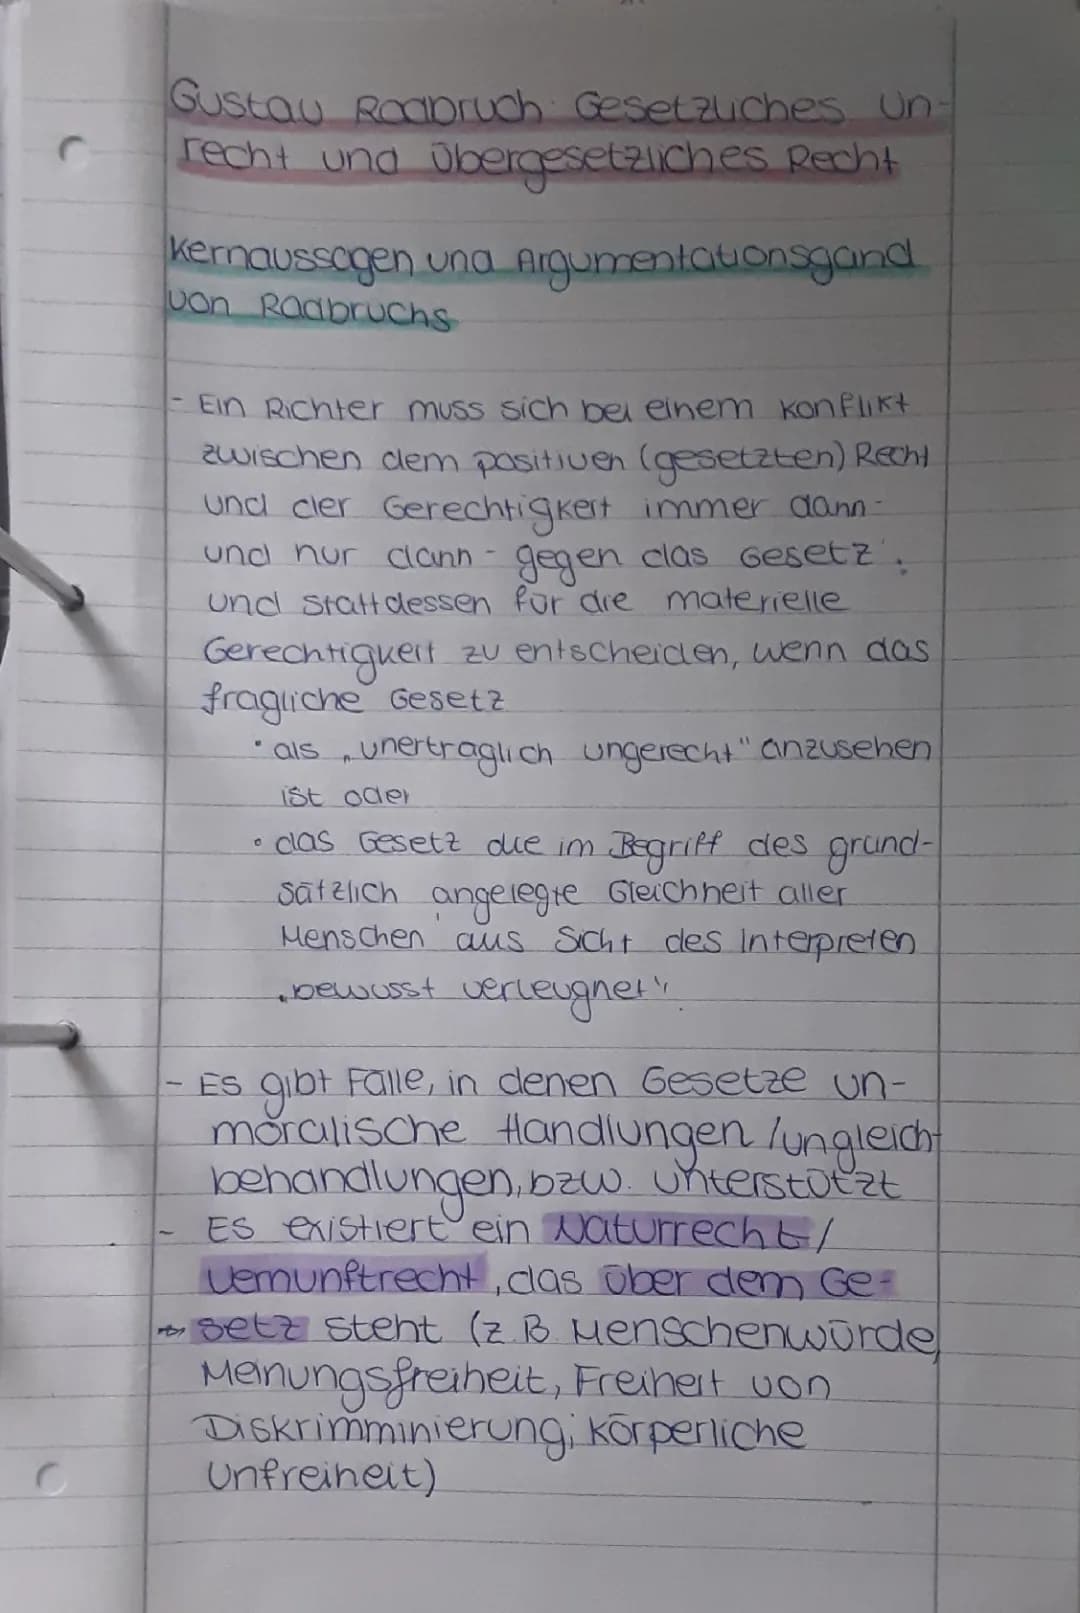 Gustav Radbruch: Gesetzliches Un-
recht und Übergesetzliches Recht
Kernaussagen und Argumentationsgand
von Radbruchs
- Ein Richter muss sich bei einem Konflikt
zwischen dem positiven (gesetzten) Recht
und der Gerechtigkeit immer dann -
und nur dann - gegen das Gesetz
und stattdessen für die materielle
Gerechtigkeit zu entscheiden, wenn das
fragliche Gesetz
• als „unerträglich ungerecht" anzusehen
ist oder
• das Gesetz die im Begriff des grund-
sätzlich angelegte Gleichheit aller
Menschen aus Sicht des Interpreten
„bewusst verleugnet".
- Es gibt Fälle, in denen Gesetze un-
moralische Handlungen/ungleich-
behandlungen, bzw. unterstützt
- Es existiert ein Naturrecht/
Vernunftrecht, das über dem Ge-
setz steht (z.B. Menschenwürde,
Meinungsfreiheit, Freiheit von
Diskrimminierung, körperliche
Unfreiheit)